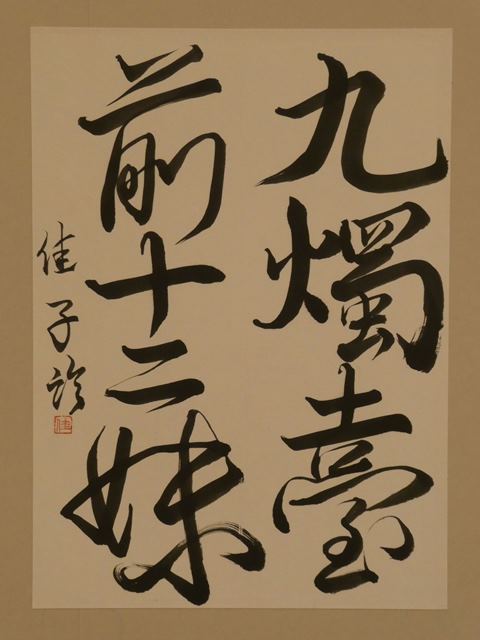 九燭臺
前十二妹
佳子臨
佳